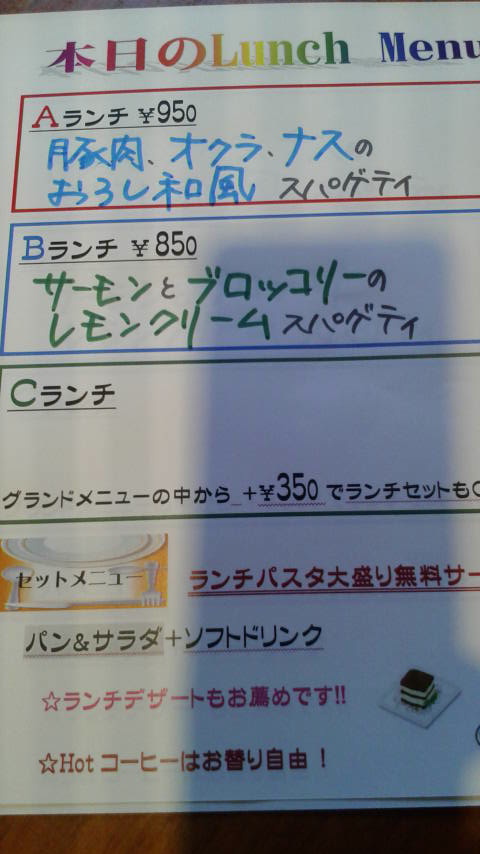 本日のLunch Menu
Aランチ ¥950
豚肉、オクラ、ナスの
おろし和風 スパゲティ
Bランチ ¥850
サーモンとブロッコリーの
レモンクリーム スパゲティ
Cランチ
グランドメニューの中から +¥350 でランチセットも
セットメニュー
ランチパスタ大盛り無料サー
パン&サラダ+ソフトドリンク
☆ランチデザートもお薦めです!!
☆Hot コーヒーはお替り自由！